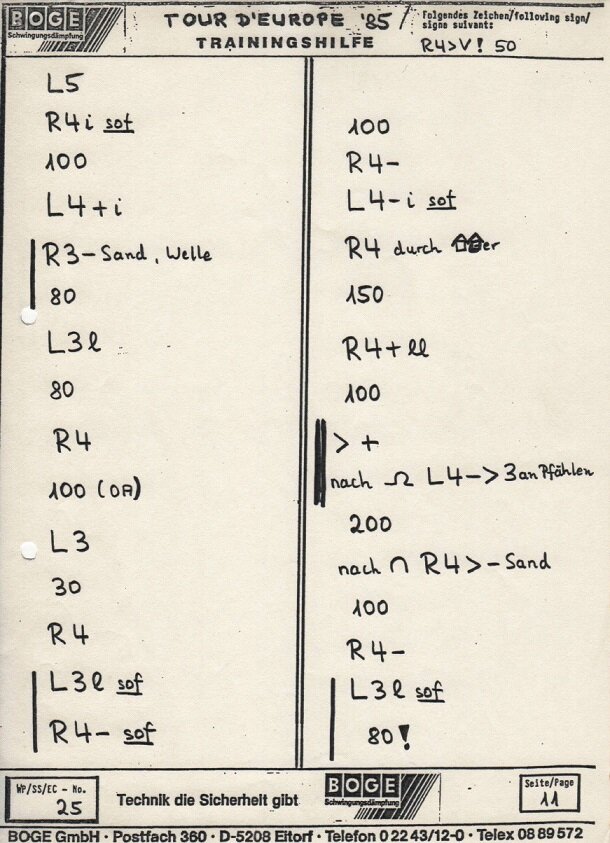 BOGE
Schwingungsdämpfung
TOUR D'EUROPE '85
TRAININGSHILFE
Folgendes Zeichen/following sign/
signe suivant:
R4>V! 50
L5
R4i sof
100
L4+i
R3-Sand, Welle
80
L3l
80
R4
100 (OA)
L3
30
R4
L3l sof
R4- sof
100
R4-
L4-i sof
R4 durch er
150
R4+ll
100
> +
nach Ω L4->3 an Pfählen
200
nach ∩ R4>-Sand
100
R4-
L3l sof
80!
WP/SS/EC - No.
25
Technik die Sicherheit gibt
BOGE
Schwingungsdämpfung
Seite/Page
11
BOGE GmbH · Postfach 360 · D-5208 Eitorf · Telefon 0 22 43/12-0 · Telex 08 89 572